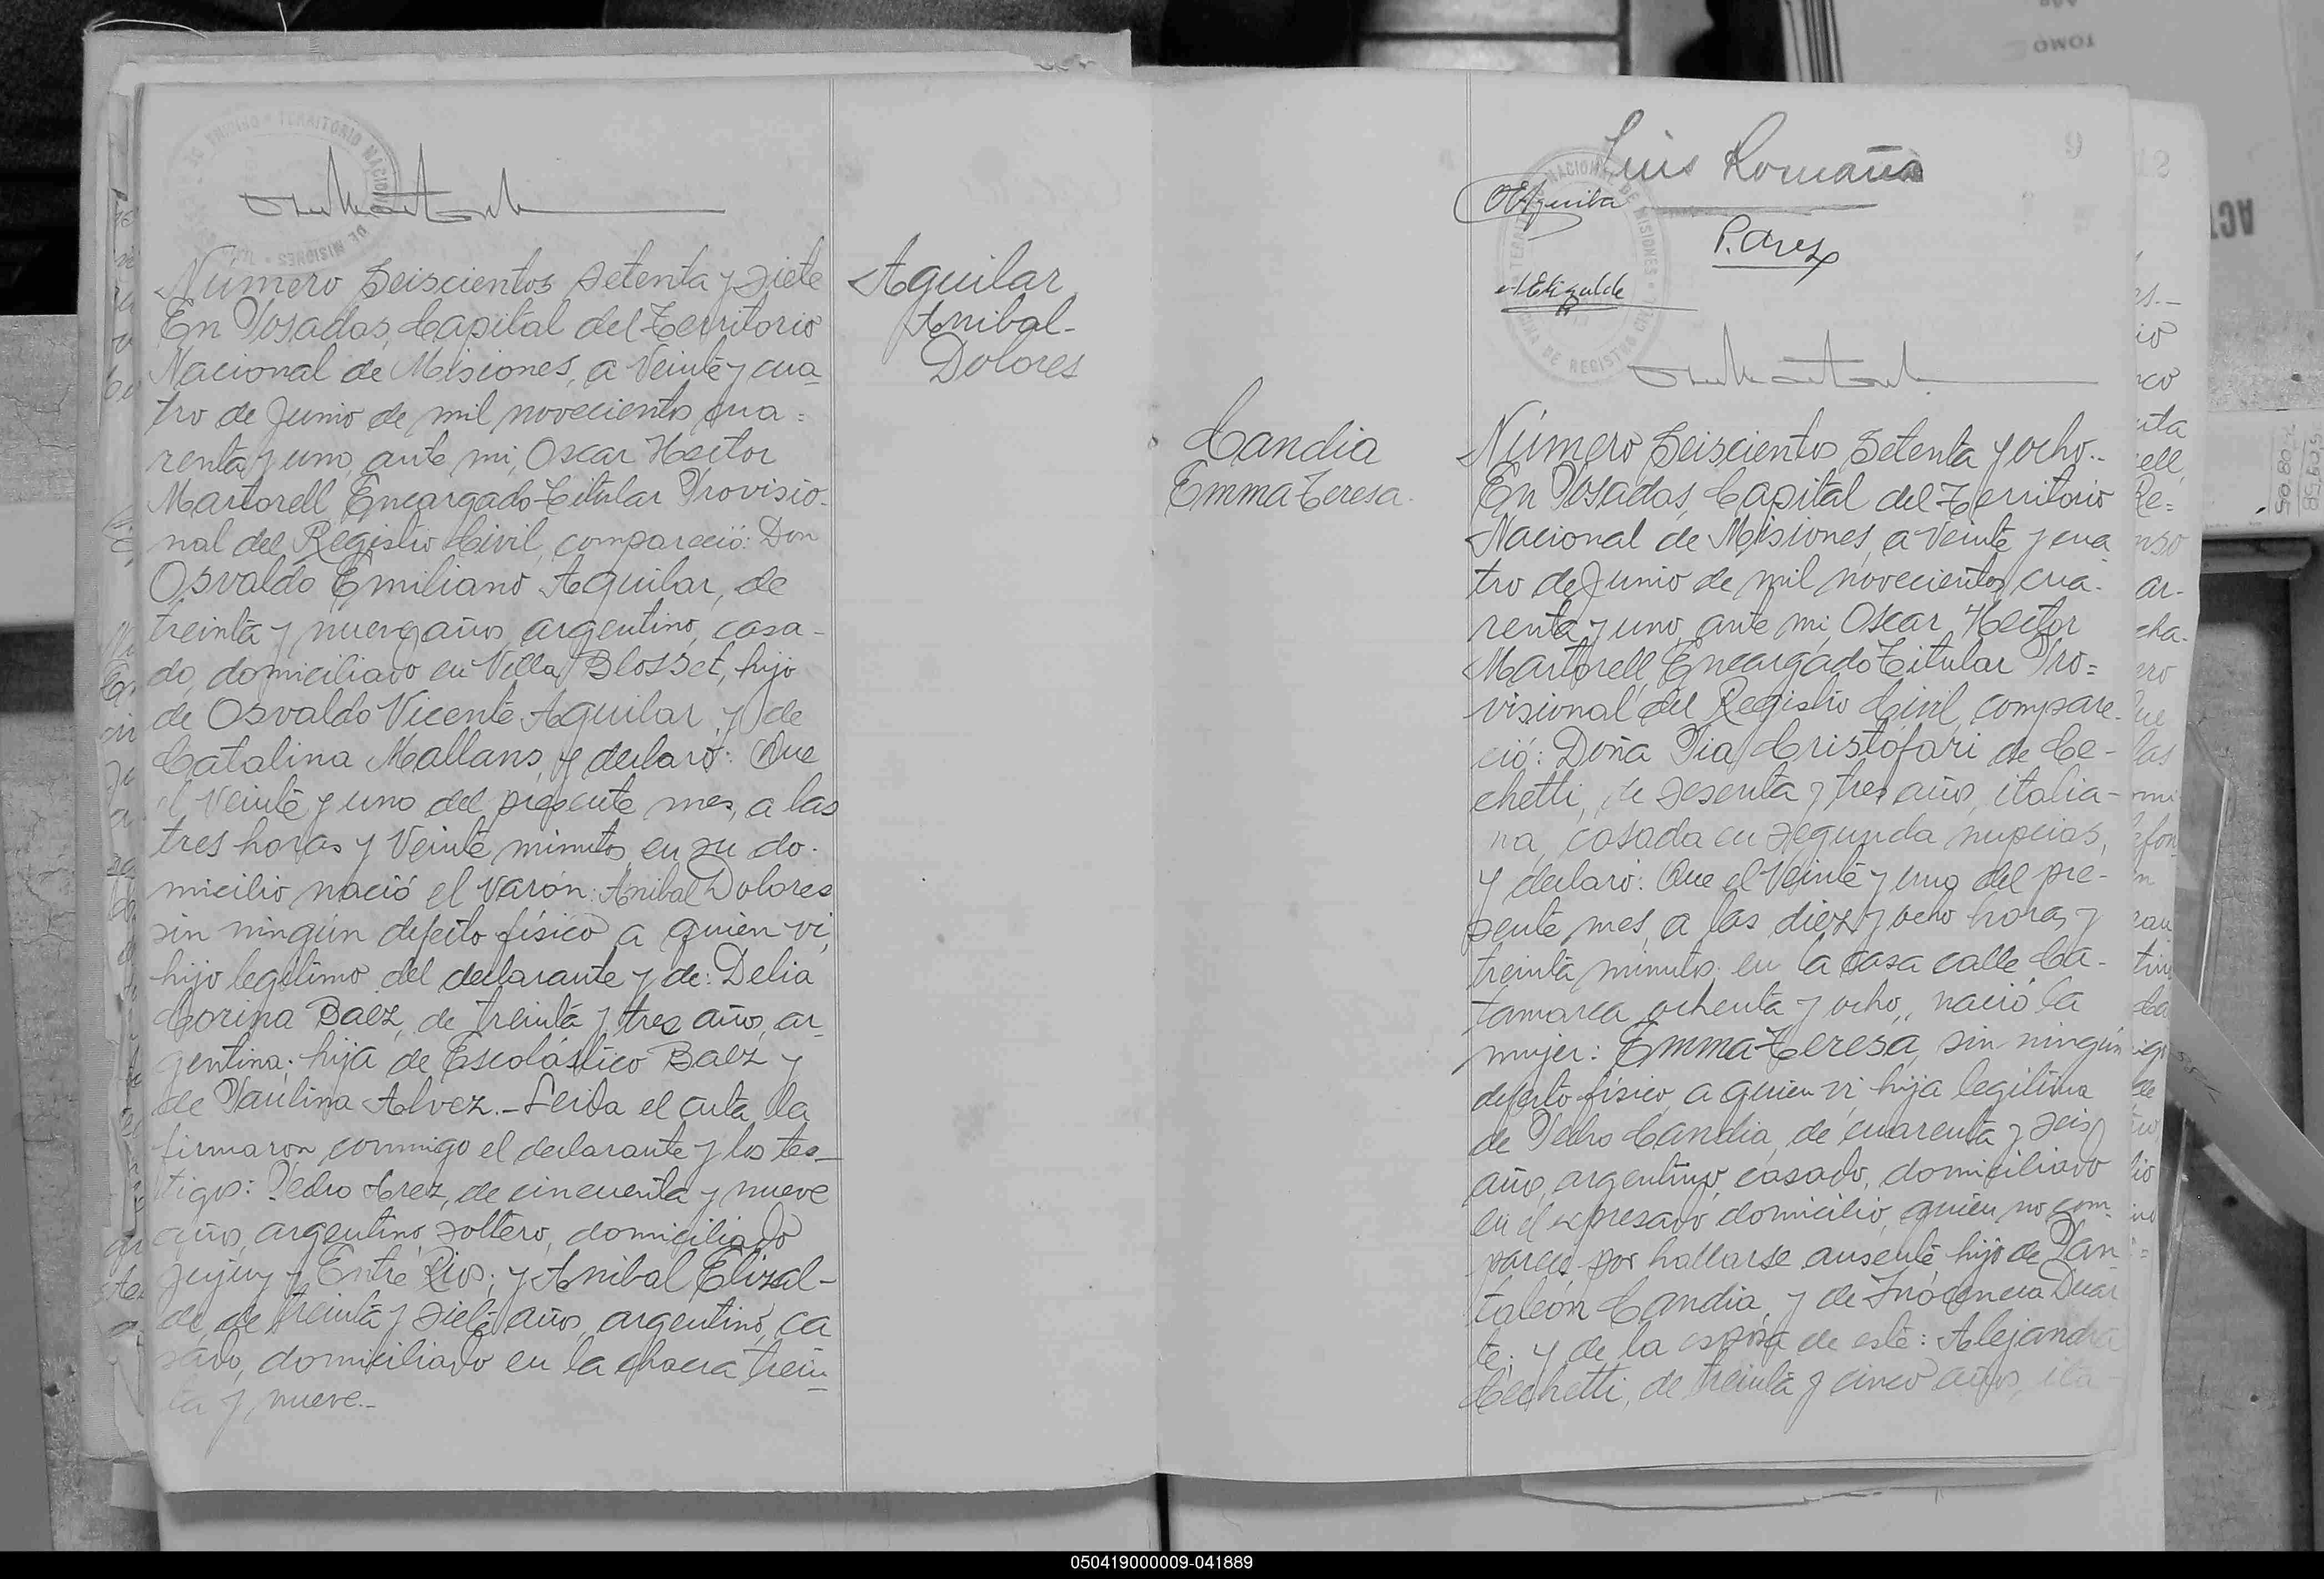 Número Seiscientos Setenta y Siete
En Posadas, Capital del Territorio
Nacional de Misiones, a Veinte y cua-
tro de Junio de mil novecientos cua=
renta y uno, ante mi, Oscar Hector
Martorell Encargado Titular Provisio-
nal del Registro Civil, compareció: Don
Osvaldo Emiliano Aguilar, de
treinta y nueve años, argentino, casa-
do, domiciliado en Villa Blosset, hijo
de Osvaldo Vicente Aguilar, y de
Catalina Mallans, y declaró: Que
el Veinte y uno del presente mes, a las
tres horas y Veinte minutos, en su do-
micilio nació el varón: Anibal Dolores
sin ningún defecto físico a quien vi,
hijo legítimo del declarante y de: Delia
Corina Baez, de treinta y tres años, ar-
gentina; hija de Escolástico Baez y
de Paulina Alvez.- Leida el acta, la
firmaron conmigo el declarante y los tes-
tigos: Pedro Arez, de cincuenta y nueve
años, argentino, soltero, domiciliado
Jujuy y Entre Rios; y Anibal Elizal-
de, de treinta y siete años, argentino, ca
sado, domiciliado en la chacra trein-
ta y nueve.-
Aguilar
Anibal-
Dolores
Luis Romaña
9
P. Arez
AElizalde
Candia
Emma Teresa.
Número Seiscientos Setenta y ocho.-
En Posadas, Capital del Territorio
Nacional de Misiones, a Veinte y cua
tro de Junio de mil novecientos cua-
renta y uno, ante mi, Oscar Hector
Martorell, Encargado Titular Pro=
visional del Registro Civil, compare-
ció: Doña Pia Cristófari de Ce-
chetti, de sesenta y tres años, italia-
na, casada en segunda nupcias,
y declaró: Que el Veinte y uno del pre-
sente mes, a las diez y ocho horas y
treinta minutos, en la casa calle Ca-
tamarca ochenta y ocho, nació la
mujer: Emma Teresa, sin ningún
defecto físico, a quien vi, hija legítima
de Pedro Candia, de cuarenta y seis
años, argentino, casado, domiciliado
en el expresado domicilio, quién no com-
parece por hallarse ausente, hijo de Pan-
taleón Candia, y de Inocencia Duar
te; y de la esposa de este: Alejandra
Cechetti, de treinta y cinco años, ita-
050419000009-041889